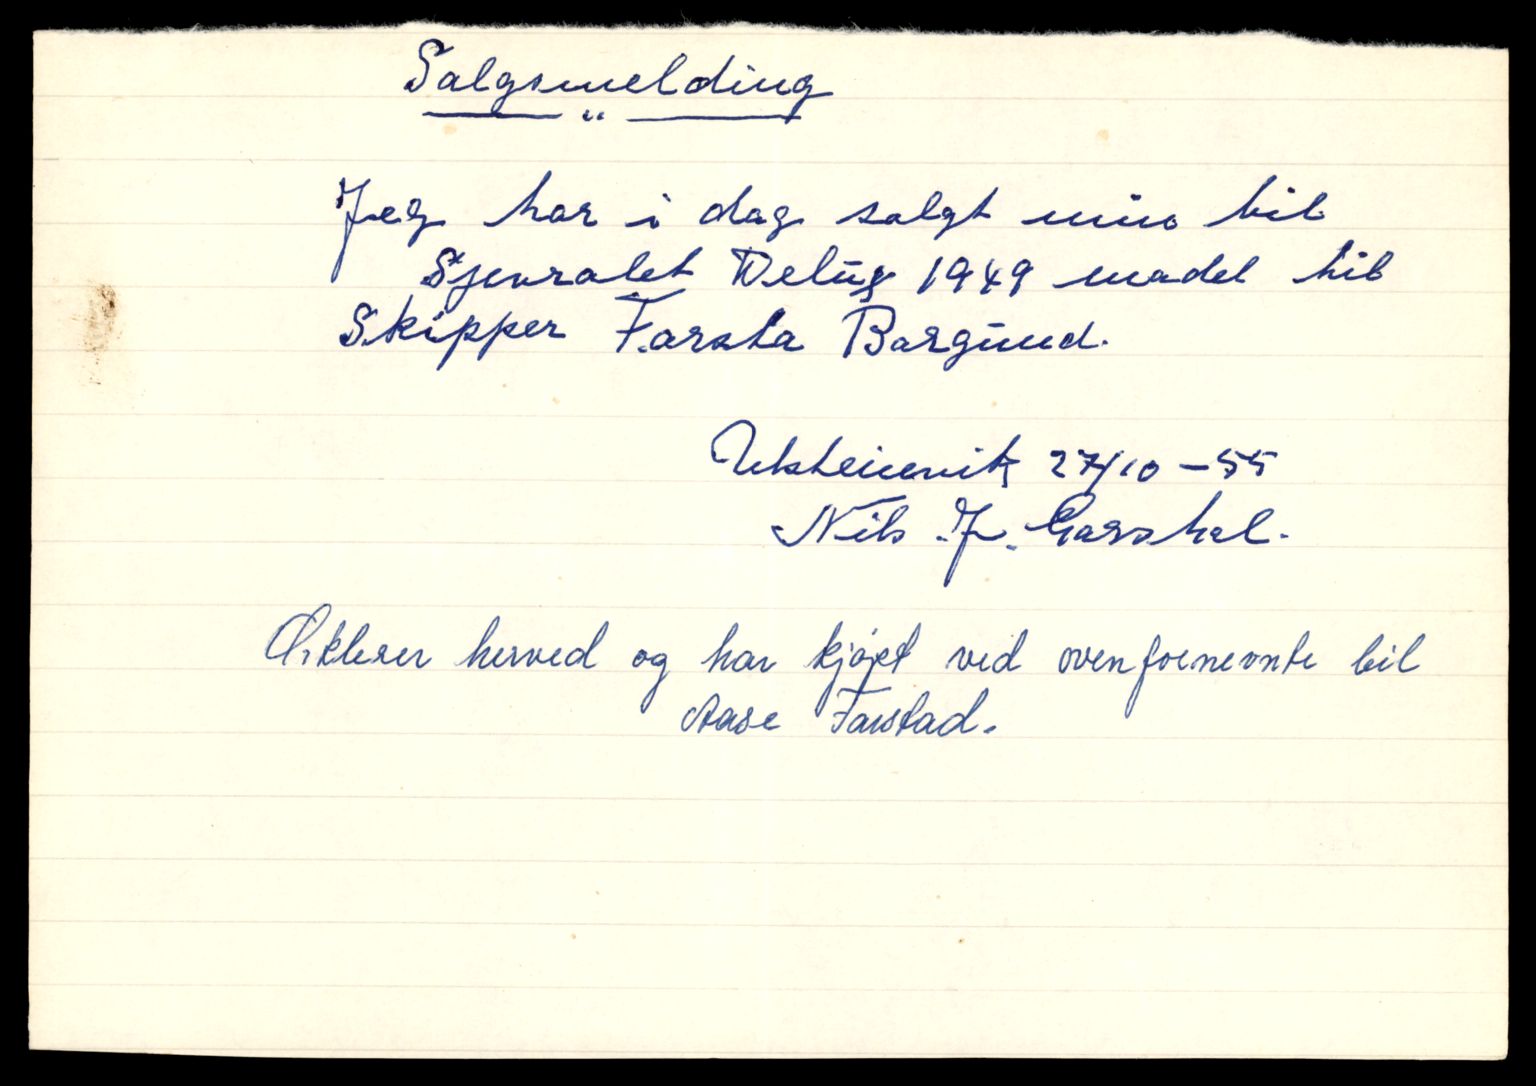 Salgsmelding
Jeg har i dag salgt min bil
Sjevralet Delüx 1949 madel til
Skipper Farsta Bargünd.
Ulsteinvik 27/10 - 55
Nils J. Garshol.
Erklerer herved og har kjøpt ved ovenfornevnte bil
Aase Farstad.